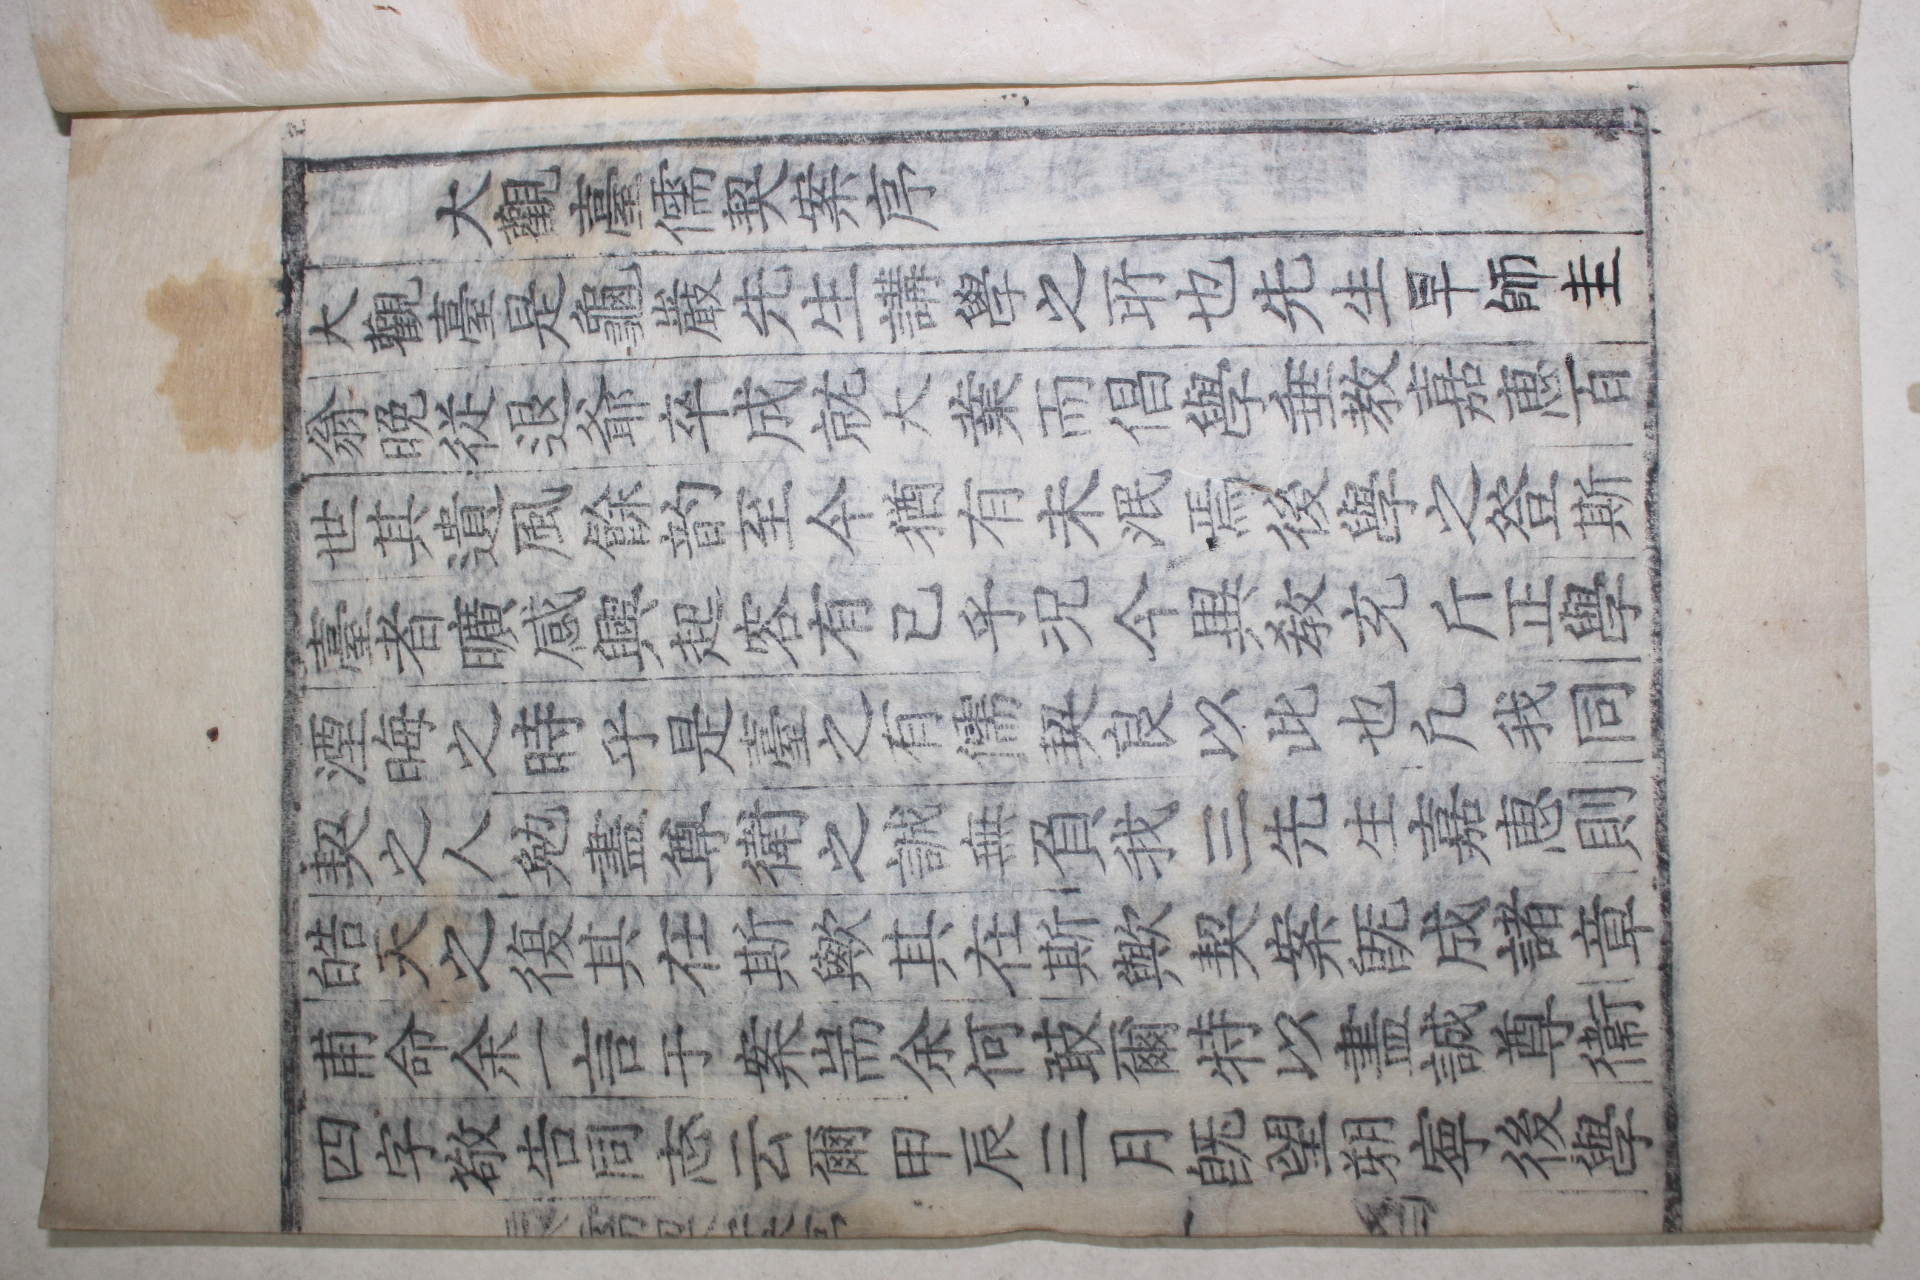 大觀臺儒契案序
大觀臺是龜巖先生講學之所也先生早師圭
翁晩從退爺卒成就大業而倡學垂教嘉惠百
世其遺風餘韵至今猶有未泯焉後學之登斯
臺者曠感興起容有已乎況今異敎充斥正學
湮晦之時乎是臺之有儒契良以此也凡我同
契之人勉盡尊衛之誠無負我三先生嘉惠則
皓天之復其在斯歟其在斯歟契案旣成諸章
甫命余一言于案耑余何敢爾特以盡誠尊衛
四字敬告同志云爾甲辰三月旣望朔寧後學